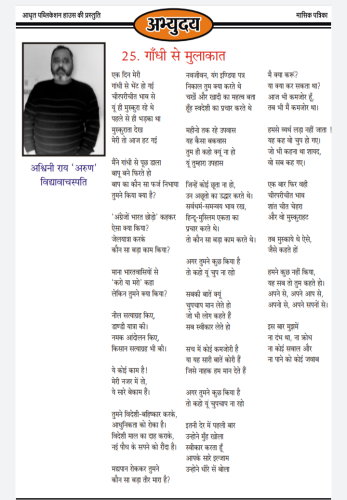 आधृत पब्लिकेशन हाउस की प्रस्तुति
अभ्युदय
मासिक पत्रिका
25. गाँधी से मुलाकात
अश्विनी राय 'अरुण'
विद्यावाचस्पति
एक दिन मेरी
गांधी से भेंट हो गई
चीरपरीचीत भाव से
यूं ही मुस्कुरा रहे थे
पहले से ही भड़का था
मुस्कुराता देख
मेरी तो आज हट गई
मैंने गांधी से पूछ डाला
बापू बने फिरते हो
बाप का कौन सा फर्ज निभाया
तुमने किया क्या है?
'अंग्रेजों भारत छोड़ो' कहकर
ऐसा क्या किया?
जेलयात्रा करके
कौन सा बड़ा काम किया?
माना भारतवासियों से
'करो या मरो' कहा
लेकिन तुमने क्या किया?
नील सत्याग्रह किए,
डाण्डी यात्रा की।
नमक आंदोलन किए,
किसान सत्याग्रह भी की।
ये कोई काम है!
मेरी नजर में तो,
ये सारे बेकाम है।
तुमने विदेशी-बहिष्कार करके,
आधुनिकता को रोका है।
विदेशी माल का दाह कराके,
नई पौध के सपने को रौंदा है।
मद्यपान रोककर तुमने
कौन सा बड़ा तीर मारा है?
नवजीवन, यंग इण्डिया पत्र
निकाल तुम क्या करते थे
चर्खे और खादी का महत्व बता
तुम स्वदेशी का प्रचार करते थे
महीनों तक रहे उपवास
यह कैसा बकवास
तुम ही कहो क्यूं ना हो
यूं तुम्हारा उपहास
जिन्हें कोई छूता ना हो,
उन अछूतो का उद्धार करते थे।
सर्वधर्म-समन्वय भाव रखा,
हिन्दू-मुस्लिम एकता का
प्रचार करते थे।
तो कौन सा बड़ा काम करते थे।
अगर तुमने कुछ किया है
तो कहो यूं चुप ना रहो
सबकी बातें क्यूं
चुपचाप मान लेते हो
जो भी लोग कहते हैं
सब स्वीकार लेते हो
सच में कोई कमजोरी है
या यह सारी बातें कोरी हैं
जिसे नाहक हम मान देते हैं
अगर तुमने कुछ किया है
तो कहो यूं चुपचाप ना रहो
इतनी देर में पहली बार
उन्होने मुँह खोला
स्वीकार करता हूँ
आपके सारे इल्जाम
उन्होंने धीरे से बोला
मैं क्या करूं?
या क्या कर सकता था?
आज भी कमजोर हूँ,
तब भी मैं कमजोर था।
हमसे व्यर्थ लड़ा नहीं जाता !
यह कह वो चुप हो गए।
जो भी कहना था शायद,
वो सब कह गए।
एक बार फिर वही
चीरपरीचीत भाव
शांत चीत्त चेहरा
और वो मुस्कुराहट
तब मुस्काये थे ऐसे,
जैसे कहते हों
हमने कुछ नहीं किया,
यह सब तो तुम कहते हो।
अपने से, अपने आप से,
अपनो से, अपने सपनों से।
इस बार मुझमें
ना दंभ था, ना क्रोध
ना कोई सवाल और
ना पाने को कोई जवाब